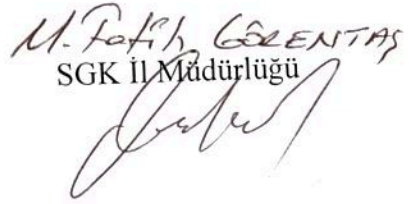 M. Fatih GÖRENTAŞ
SGK İl Müdürlüğü